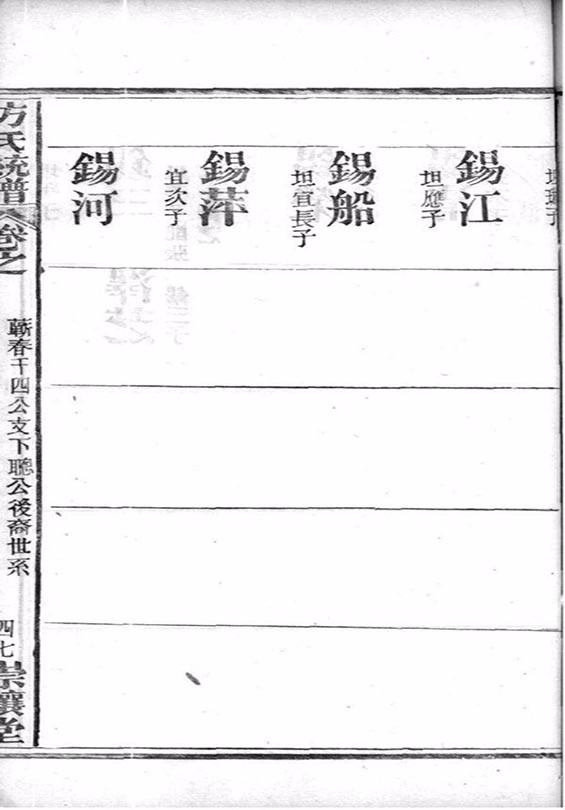 錫江
坦應子
錫船
坦宜長子
錫萍
宜次子
錫河
方氏統譜
卷之
蘄春千四公支下聰公後裔世系
四七
崇讓堂